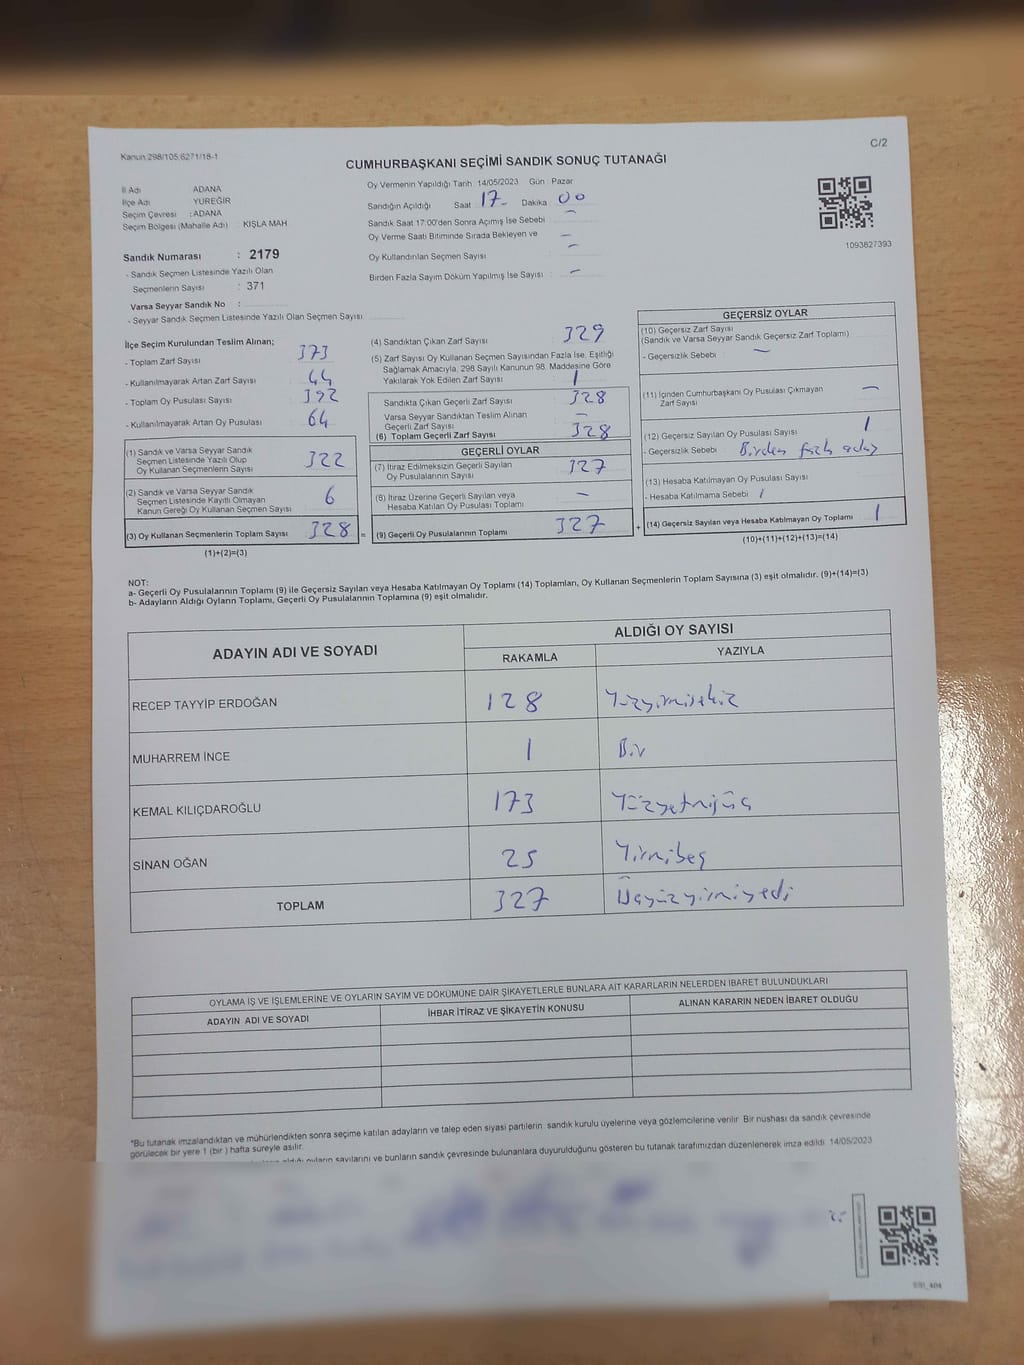 Kanun 298/105;6271/18-1
C/2
CUMHURBAŞKANI SEÇİMİ SANDIK SONUÇ TUTANAĞI
İl Adı ADANA
İlçe Adı YÜREĞİR
Seçim Çevresi : ADANA
Seçim Bölgesi (Mahalle Adı) KIŞLA MAH
Oy Vermenin Yapıldığı Tarih 14/05/2023 Gün Pazar
Sandığın Açıldığı Saat 17- Dakika 00
Sandık Saat 17:00'den Sonra Açımış İse Sebebi -
Oy Verme Saati Bitiminde Sırada Bekleyen ve -
Oy Kullandırılan Seçmen Sayısı -
Birden Fazla Sayım Döküm Yapılmış İse Sayısı : -
1093627393
Sandık Numarası : 2179
- Sandık Seçmen Listesinde Yazılı Olan
Seçmenlerin Sayısı : 371
Varsa Seyyar Sandık No :
- Seyyar Sandık Seçmen Listesinde Yazılı Olan Seçmen Sayısı:
İlçe Seçim Kurulundan Teslim Alınan;
- Toplam Zarf Sayısı 373
- Kullanılmayarak Artan Zarf Sayısı 44
- Toplam Oy Pusulası Sayısı 392
- Kullanılmayarak Artan Oy Pusulası 64
(1) Sandık ve Varsa Seyyar Sandık
Seçmen Listesinde Yazılı Olup
Oy Kullanan Seçmenlerin Sayısı 322
(2) Sandık ve Varsa Seyyar Sandık
Seçmen Listesinde Kayıtlı Olmayan
Kanun Gereği Oy Kullanan Seçmen Sayısı 6
(3) Oy Kullanan Seçmenlerin Toplam Sayısı 328
(1)+(2)=(3)
(4) Sandıktan Çıkan Zarf Sayısı 329
(5) Zarf Sayısı Oy Kullanan Seçmen Sayısından Fazla İse, Eşitliği
Sağlamak Amacıyla, 298 Sayılı Kanunun 98. Maddesine Göre
Yakılarak Yok Edilen Zarf Sayısı 1
Sandıkta Çıkan Geçerli Zarf Sayısı 328
Varsa Seyyar Sandıktan Teslim Alınan
Geçerli Zarf Sayısı -
(6) Toplam Geçerli Zarf Sayısı 328
GEÇERLİ OYLAR
(7) İtiraz Edilmeksizin Geçerli Sayılan
Oy Pusulalarının Sayısı 327
(8) İtiraz Üzerine Geçerli Sayılan veya
Hesaba Katılan Oy Pusulası Toplamı -
= (9) Geçerli Oy Pusulalarının Toplamı 327
GEÇERSİZ OYLAR
(10) Geçersiz Zarf Sayısı
(Sandık ve Varsa Seyyar Sandık Geçersiz Zarf Toplamı)
- Geçersizlik Sebebi : -
(11) İçinden Cumhurbaşkanı Oy Pusulası Çıkmayan
Zarf Sayısı -
(12) Geçersiz Sayılan Oy Pusulası Sayısı 1
- Geçersizlik Sebebi Birden fazla aday
(13) Hesaba Katılmayan Oy Pusulası Sayısı
- Hesaba Katılmama Sebebi /
+ (14) Geçersiz Sayılan veya Hesaba Katılmayan Oy Toplamı 1
(10)+(11)+(12)+(13)=(14)
NOT:
a- Geçerli Oy Pusulalarının Toplamı (9) ile Geçersiz Sayılan veya Hesaba Katılmayan Oy Toplamı (14) Toplamları, Oy Kullanan Seçmenlerin Toplam Sayısına (3) eşit olmalıdır. (9)+(14)=(3)
b- Adayların Aldığı Oyların Toplamı, Geçerli Oy Pusulalarının Toplamına (9) eşit olmalıdır.
ADAYIN ADI VE SOYADI
ALDIĞI OY SAYISI
RAKAMLA YAZIYLA
RECEP TAYYİP ERDOĞAN 128 Yüzyirmisekiz
MUHARREM İNCE 1 Bir
KEMAL KILIÇDAROĞLU 173 Yüzyetmişüç
SİNAN OĞAN 25 Yirmibeş
TOPLAM 327 Üçyüzyirmiyedi
OYLAMA İŞ VE İŞLEMLERİNE VE OYLARIN SAYIM VE DÖKÜMÜNE DAİR ŞİKAYETLERLE BUNLARA AİT KARARLARIN NELERDEN İBARET BULUNDUKLARI
ADAYIN ADI VE SOYADI İHBAR İTİRAZ VE ŞİKAYETİN KONUSU ALINAN KARARIN NEDEN İBARET OLDUĞU
*Bu tutanak imzalandıktan ve mühürlendikten sonra seçime katılan adayların ve talep eden siyasi partilerin sandık kurulu üyelerine veya gözlemcilerine verilir. Bir nüshası da sandık çevresinde
görülecek bir yere 1 (bir ) hafta süreyle asılır.
oyların sayılarını ve bunların sandık çevresinde bulunanlara duyurulduğunu gösteren bu tutanak tarafımızdan düzenlenerek imza edildi. 14/05/2023